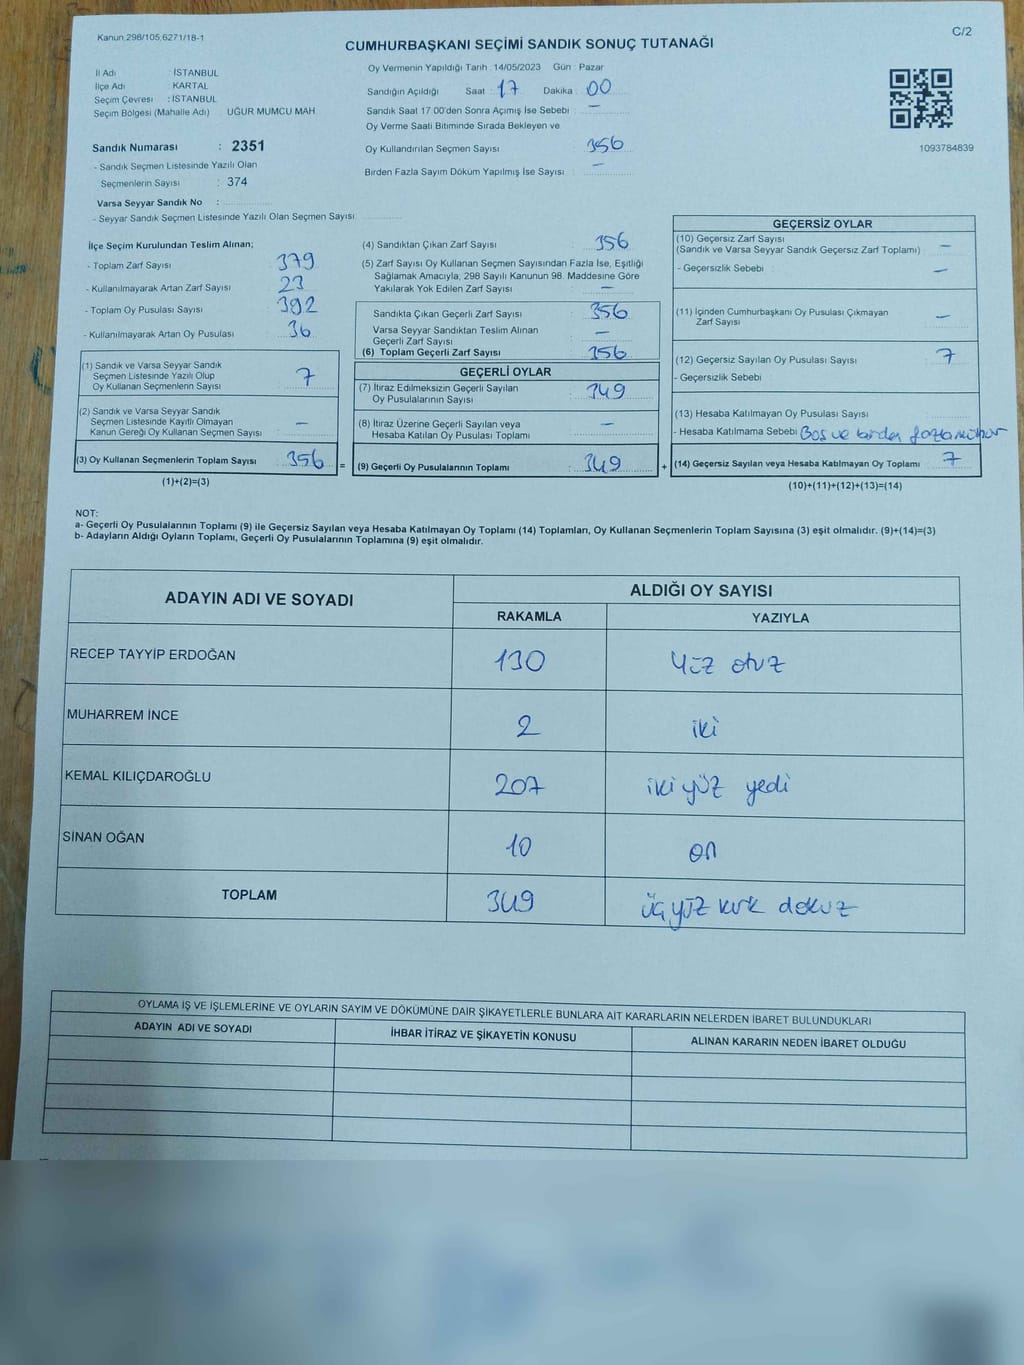 Kanun 298/105,6271/18-1
C/2
CUMHURBAŞKANI SEÇİMİ SANDIK SONUÇ TUTANAĞI
İl Adı : İSTANBUL
İlçe Adı : KARTAL
Seçim Çevresi : İSTANBUL
Seçim Bölgesi (Mahalle Adı) UĞUR MUMCU MAH
Sandık Numarası : 2351
- Sandık Seçmen Listesinde Yazılı Olan
Seçmenlerin Sayısı : 374
Varsa Seyyar Sandık No :
- Seyyar Sandık Seçmen Listesinde Yazılı Olan Seçmen Sayısı
Oy Vermenin Yapıldığı Tarih : 14/05/2023 Gün : Pazar
Sandığın Açıldığı Saat : 17 Dakika : 00
Sandık Saat 17.00'den Sonra Açımış İse Sebebi : —
Oy Verme Saati Bitiminde Sırada Bekleyen ve
Oy Kullandırılan Seçmen Sayısı : 356
Birden Fazla Sayım Döküm Yapılmış İse Sayısı : —
1093784839
İlçe Seçim Kurulundan Teslim Alınan;
- Toplam Zarf Sayısı : 379
- Kullanılmayarak Artan Zarf Sayısı : 23
- Toplam Oy Pusulası Sayısı : 392
- Kullanılmayarak Artan Oy Pusulası : 36
(1) Sandık ve Varsa Seyyar Sandık
Seçmen Listesinde Yazılı Olup
Oy Kullanan Seçmenlerin Sayısı : 7
(2) Sandık ve Varsa Seyyar Sandık
Seçmen Listesinde Kayıtlı Olmayan
Kanun Gereği Oy Kullanan Seçmen Sayısı : —
(3) Oy Kullanan Seçmenlerin Toplam Sayısı : 356 =
(1)+(2)=(3)
(4) Sandıktan Çıkan Zarf Sayısı : 356
(5) Zarf Sayısı Oy Kullanan Seçmen Sayısından Fazla İse, Eşitliği
Sağlamak Amacıyla; 298 Sayılı Kanunun 98. Maddesine Göre
Yakılarak Yok Edilen Zarf Sayısı : —
Sandıkta Çıkan Geçerli Zarf Sayısı : 356
Varsa Seyyar Sandıktan Teslim Alınan
Geçerli Zarf Sayısı : —
(6) Toplam Geçerli Zarf Sayısı : 356
GEÇERLİ OYLAR
(7) İtiraz Edilmeksizin Geçerli Sayılan
Oy Pusulalarının Sayısı : 349
(8) İtiraz Üzerine Geçerli Sayılan veya
Hesaba Katılan Oy Pusulası Toplamı : —
(9) Geçerli Oy Pusulalarının Toplamı : 349 +
GEÇERSİZ OYLAR
(10) Geçersiz Zarf Sayısı
(Sandık ve Varsa Seyyar Sandık Geçersiz Zarf Toplamı) : —
- Geçersizlik Sebebi : —
(11) İçinden Cumhurbaşkanı Oy Pusulası Çıkmayan
Zarf Sayısı : —
(12) Geçersiz Sayılan Oy Pusulası Sayısı : 7
- Geçersizlik Sebebi :
(13) Hesaba Katılmayan Oy Pusulası Sayısı :
- Hesaba Katılmama Sebebi Boş ve birden fazla mühür
(14) Geçersiz Sayılan veya Hesaba Katılmayan Oy Toplamı : 7
(10)+(11)+(12)+(13)=(14)
NOT:
a- Geçerli Oy Pusulalarının Toplamı (9) ile Geçersiz Sayılan veya Hesaba Katılmayan Oy Toplamı (14) Toplamları, Oy Kullanan Seçmenlerin Toplam Sayısına (3) eşit olmalıdır. (9)+(14)=(3)
b- Adayların Aldığı Oyların Toplamı, Geçerli Oy Pusulalarının Toplamına (9) eşit olmalıdır.
ADAYIN ADI VE SOYADI
ALDIĞI OY SAYISI
RAKAMLA YAZIYLA
RECEP TAYYİP ERDOĞAN 130 Yüz otuz
MUHARREM İNCE 2 iki
KEMAL KILIÇDAROĞLU 207 iki yüz yedi
SİNAN OĞAN 10 on
TOPLAM 349 üçyüz kırk dokuz
OYLAMA İŞ VE İŞLEMLERİNE VE OYLARIN SAYIM VE DÖKÜMÜNE DAİR ŞİKAYETLERLE BUNLARA AİT KARARLARIN NELERDEN İBARET BULUNDUKLARI
ADAYIN ADI VE SOYADI İHBAR İTİRAZ VE ŞİKAYETİN KONUSU ALINAN KARARIN NEDEN İBARET OLDUĞU